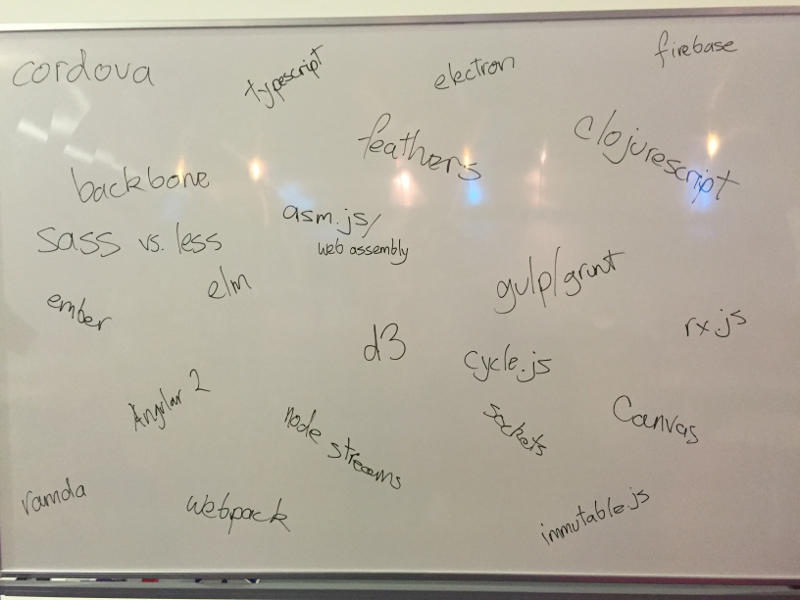 cordova
typescript
electron
firebase
feathers
clojurescript
backbone
asm.js/
web assembly
sass vs. less
elm
gulp/grunt
ember
rx.js
d3
cycle.js
Angular 2
node streams
sockets
Canvas
ramda
webpack
immutable.js